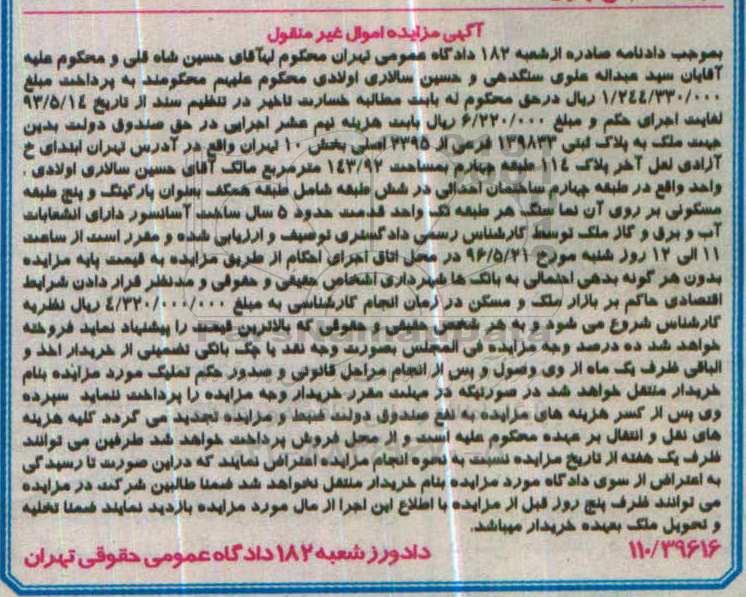 آگهی مزایده اموال غیر منقول
بموجب دادنامه صادره ازشعبه ۱۸۲ دادگاه عمومی تهران محکوم لهآقای حسین شاه قلی و محکوم علیه
آقایان سید عبداله علوی سنگدهی و حسین سالاری اولادی محکوم علیهم محکومند به پرداخت مبلغ
۱/۲٤٤/۳۳۰/۰۰۰ ریال درحق محکوم له بابت مطالبه خسارت تاخیر در تنظیم سند از تاریخ ۹۳/۵/۱٤
لغایت اجرای حکم و مبلغ ۶/۲۲۰/۰۰۰ ریال بابت هزینه نیم عشر اجرایی در حق صندوق دولت بدین
جهت ملک به پلاک ثبتی ۱۳۹۸۳۳ فرعی از ۲۳۹۵ اصلی بخش ۱۰ تهران واقع در آدرس تهران ابتدای خ
آزادی لعل آخر پلاک ۱۱٤ طبقه چهارم بمساحت ۱٤۳/۹۲ مترمربع مالک آقای حسین سالاری اولادی .
واحد واقع در طبقه چهارم ساختمان احداثی در شش طبقه شامل طبقه همکف بعنوان پارکینگ و پنج طبقه
مسکونی بر روی آن نما سنگ هر طبقه تک واحد قدمت حدود ۵ سال ساخت آسانسور دارای انشعابات
آب و برق و گاز ملک توسط کارشناس رسمی دادگستری توصیف و ارزیابی شده و مقرر است از ساعت
۱۱ الی ۱۲ روز شنبه مورخ ۹۶/۵/۲۱ در محل اتاق اجرای احکام از طریق مزایده به قیمت پایه مزایده
بدون هر گونه بدهی احتمالی به بانک ها شهرداری اشخاص حقیقی و حقوقی و مدنظر قرار دادن شرایط
اقتصادی حاکم بر بازار ملک و مسکن در زمان انجام کارشناسی به مبلغ ٤/۳۲۰/۰۰۰/۰۰۰ ریال نظریه
کارشناس شروع می شود و به هر شخص حقیقی و حقوقی که بالاترین قیمت را پیشنهاد نماید فروخته
خواهد شد ده درصد وجه مزایده فی المجلس بصورت وجه نقد یا چک بانکی تضمینی از خریدار اخذ و
الباقی ظرف یک ماه از وی وصول و پس از انجام مراحل قانونی و صدور حکم تملیک مورد مزایده بنام
خریدار منتقل خواهد شد در صورتیکه در مهلت مقرر خریدار وجه مزایده را پرداخت ننماید سپرده
وی پس از کسر هزینه های مزایده به نفع صندوق دولت ضبط و مزایده تجدید می گردد کلیه هزینه
های نقل و انتقال بر عهده محکوم علیه است و از محل فروش پرداخت خواهد شد طرفین می توانند
ظرف یک هفته از تاریخ مزایده نسبت به نحوه انجام مزایده اعتراض نمایند که دراین صورت تا رسیدگی
به اعتراض از سوی دادگاه مورد مزایده بنام خریدار منتقل نخواهد شد ضمنا طالبین شرکت در مزایده
می توانند ظرف پنج روز قبل از مزایده با اطلاع این اجرا از مال مورد مزایده بازدید نمایند ضمنا تخلیه
و تحویل ملک بعهده خریدار میباشد.
۱۱۰/۳۹۶۱۶ دادورز شعبه ۱۸۲ دادگاه عمومی حقوقی تهران